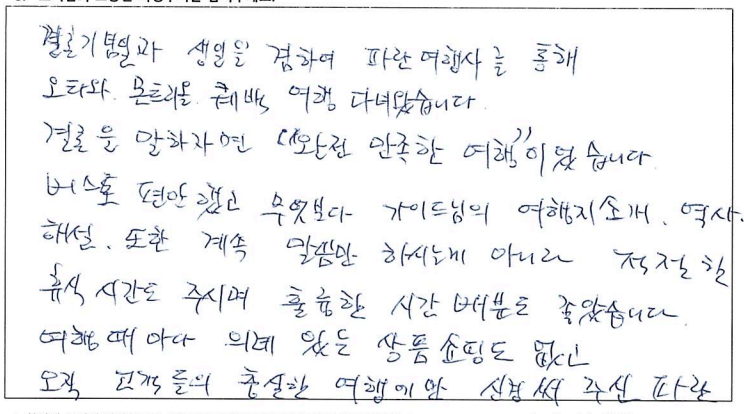 결혼기념일과 생일을 겸하여 파란여행사를 통해
오타와. 몬트리올. 퀘백, 여행 다녀왔습니다.
결론을 말하자면 "완전 만족한 여행"이었습니다.
버스도 편안했고 무엇보다 가이드님의 여행지소개. 역사.
해설. 또한 계속 말씀만 하시는게 아니라 적절한
휴식 시간도 주시며 훌륭한 시간 배분도 좋았습니다.
여행때 마다 의례 있는 상품쇼핑도 없고
오직 고객들의 충실한 여행에만 신경써 주신 파란